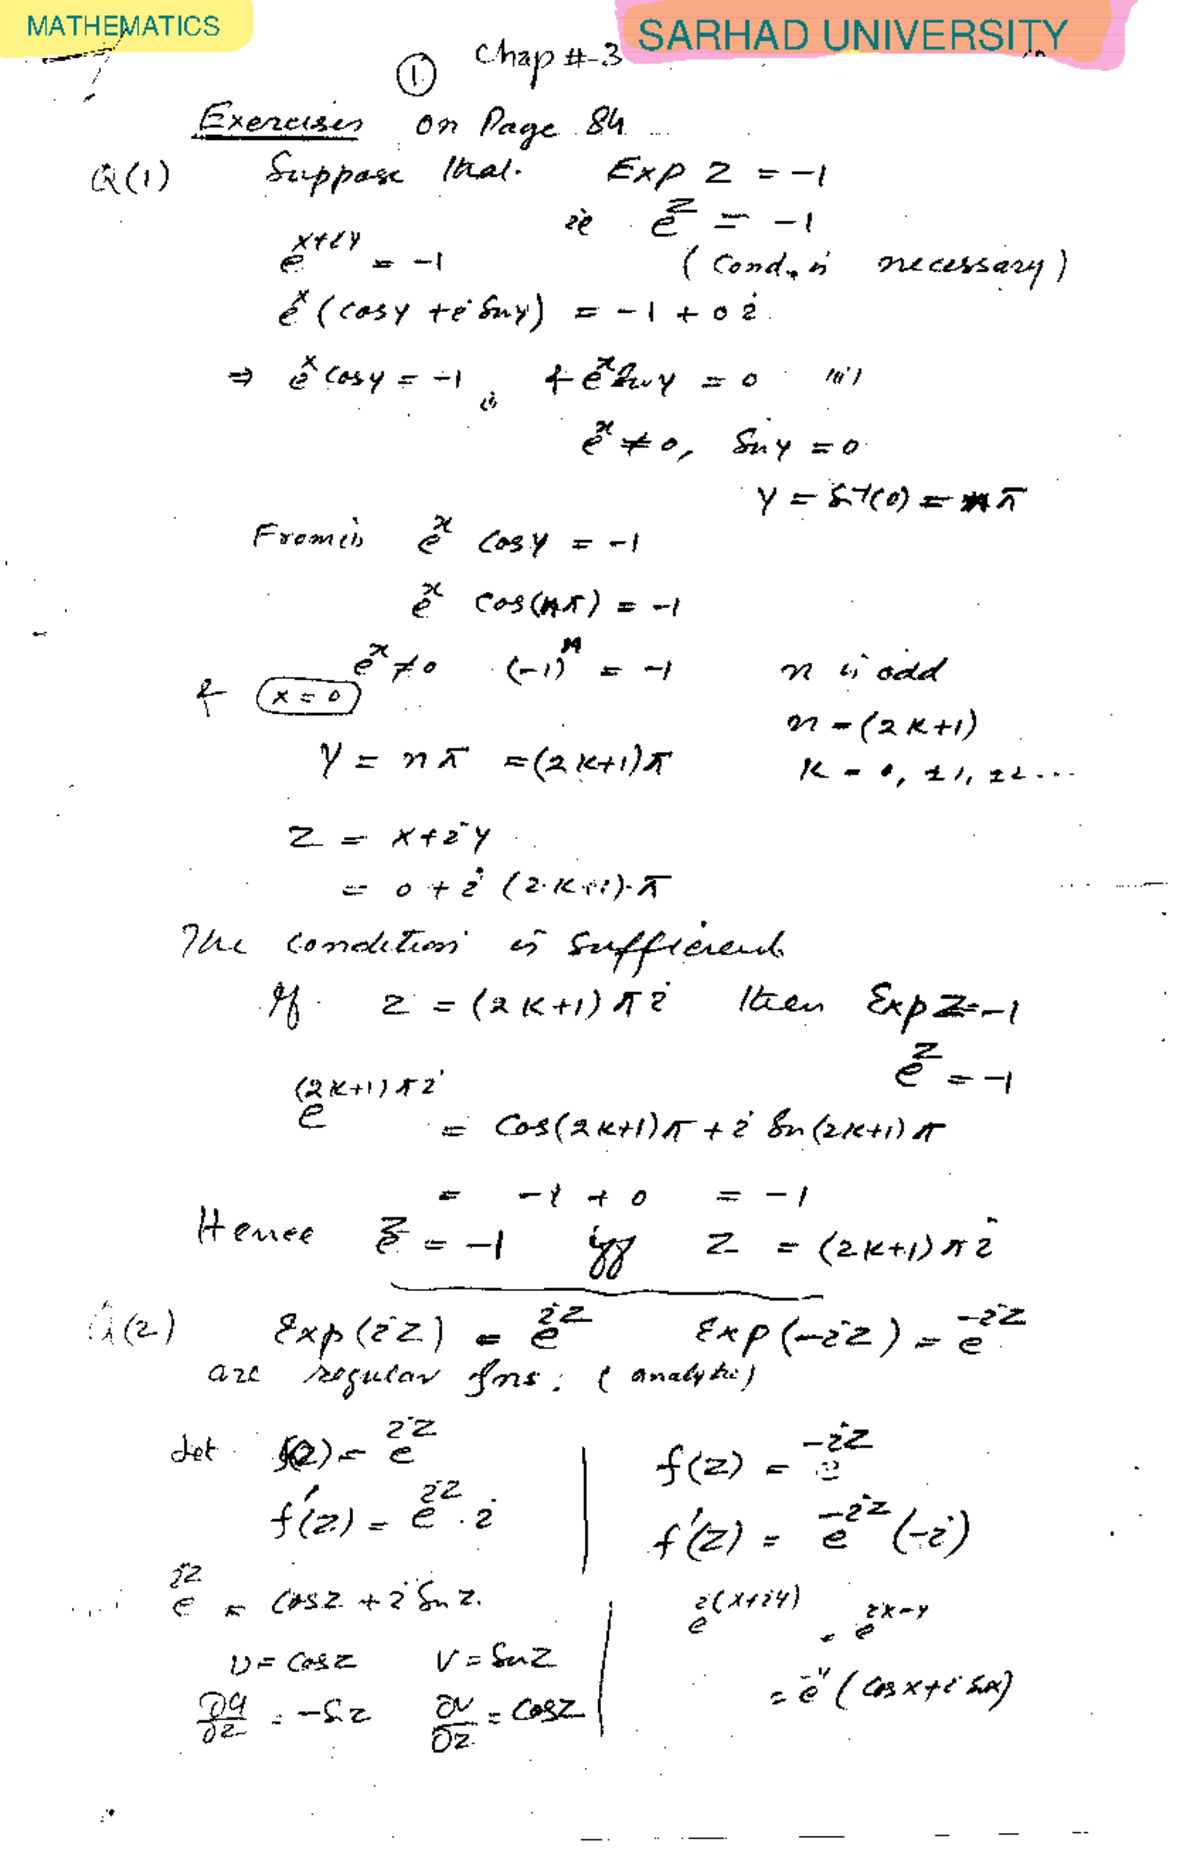 MATHEMATICS
SARHAD UNIVERSITY
① Chap #-3
Exercises on Page 84
Q(1) Suppose that. Exp z = -1
ie e^z = -1
e^{x+iy} = -1 (Cond. is necessary)
e^x (cosy + i siny) = -1 + 0i
⇒ e^x cosy = -1 (i) & e^x siny = 0 (ii)
e^x ≠ 0, siny = 0
y = sin^{-1}(0) = nπ
From (i) e^x cosy = -1
e^x cos(nπ) = -1
e^x ≠ 0 (-1)^n = -1 n is odd
& x = 0 n = (2k+1)
y = nπ = (2k+1)π k = 0, ±1, ±2 ...
z = x + iy
= 0 + i (2k+1).π
The condition is sufficient
If z = (2k+1)πi then Exp z = -1
e^z = -1
e^{(2k+1)πi} = cos(2k+1)π + i sin(2k+1)π
= -1 + 0 = -1
Hence e^z = -1 iff z = (2k+1)πi
Q(2) Exp(iz) = e^{iz} Exp(-iz) = e^{-iz}
are regular fns. (analytic)
Let f(z) = e^{iz} | f(z) = e^{-iz}
f'(z) = e^{iz}.i | f'(z) = e^{-iz}(-i)
e^{iz} = cosz + i sinz. | e^{i(x+iy)} = e^{ix-y}
U = cosz V = sinz | = e^{-y}(cosx + i sinx)
∂u/∂z = -sinz ∂v/∂z = cosz